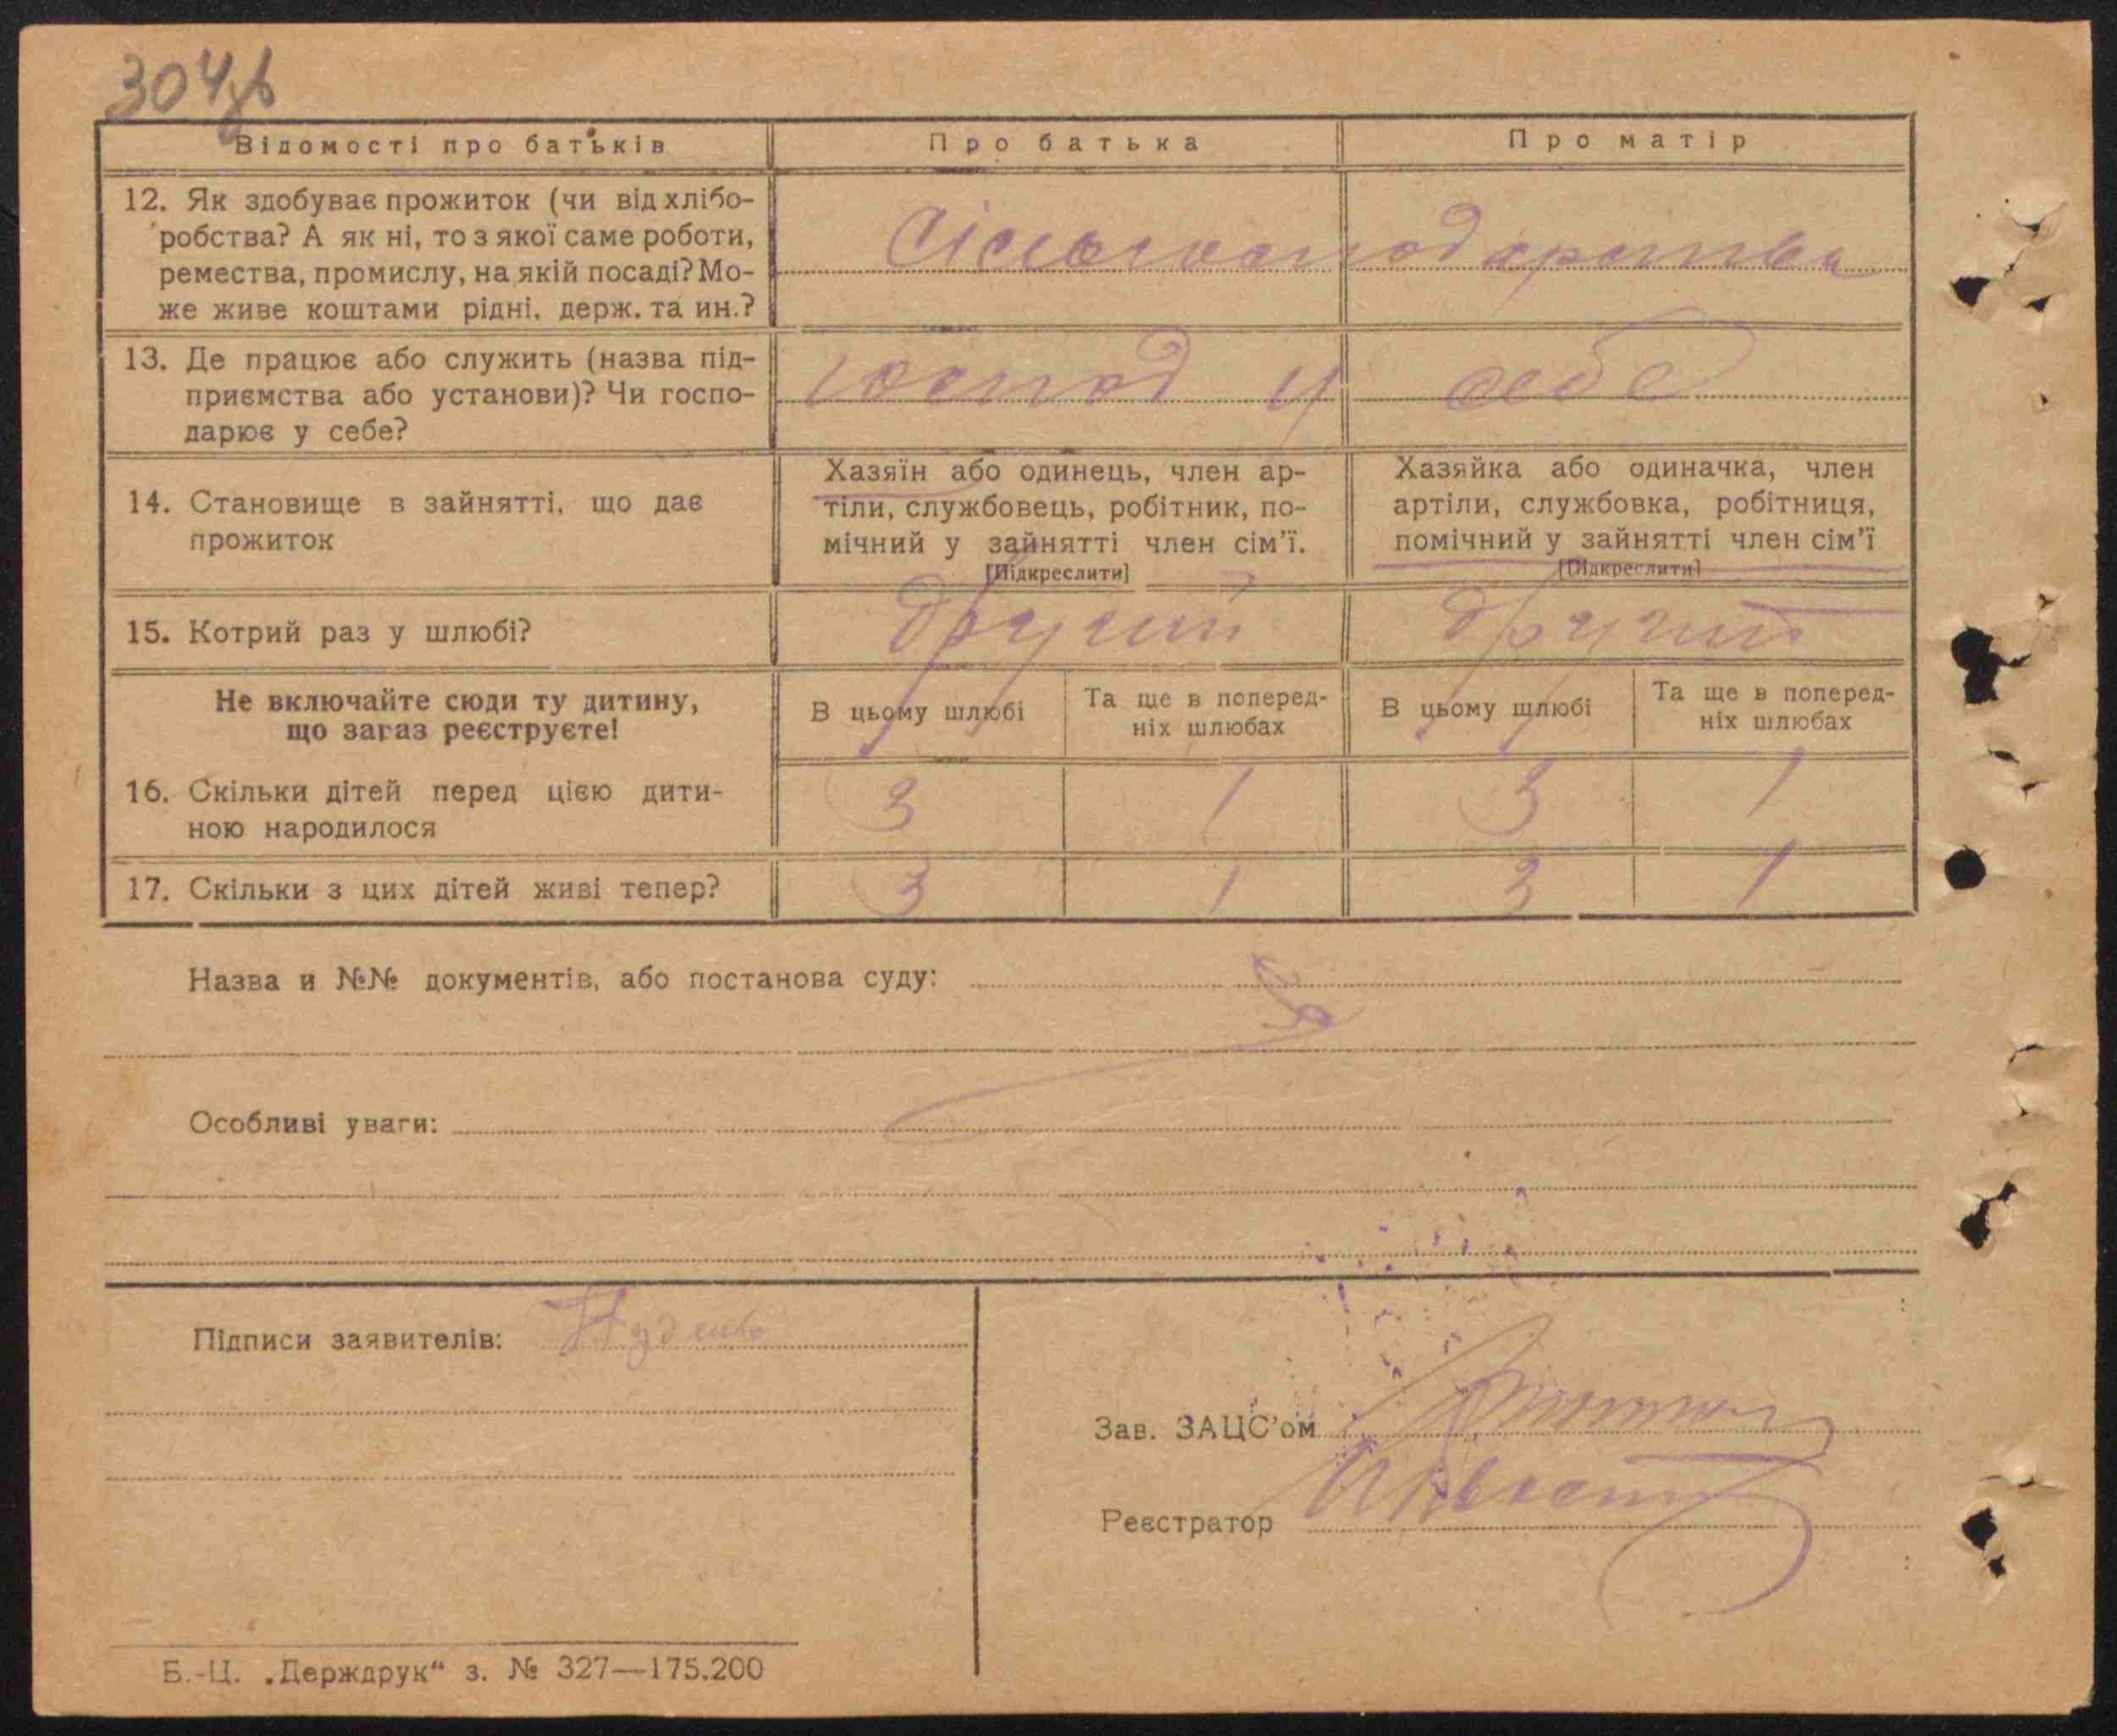 304зв
Відомості про батьків
Про батька
Про матір
12. Як здобуває прожиток (чи від хлібо-
робства? А як ні, то з якої саме роботи,
ремества, промислу, на якій посаді? Мо-
же живе коштами рідні, держ. та ин.?
Сільогосподарства
13. Де працює або служить (назва під-
приємства або установи)? Чи госпо-
дарює у себе?
господ у себе
14. Становище в зайнятті, що дає
прожиток
Хазяїн або одинець, член ар-
тіли, службовець, робітник, по-
мічний у зайнятті член сім'ї.
[Підкреслити]
Хазяйка або одиначка, член
артіли, службовка, робітниця,
помічний у зайнятті член сім'ї
[Підкреслити]
15. Котрий раз у шлюбі?
другий
другий
Не включайте сюди ту дитину,
що зараз реєструєте!
В цьому шлюбі
Та ще в поперед-
ніх шлюбах
В цьому шлюбі
Та ще в поперед-
ніх шлюбах
16. Скільки дітей перед цією дити-
ною народилося
3 1 3 1
17. Скільки з цих дітей живі тепер?
3 1 3 1
Назва и №№ документів, або постанова суду:
Особливі уваги:
Підписи заявителів:
Зав. ЗАЦС'ом
Реєстратор
Б.-Ц. „Держдрук“ з. № 327—175.200